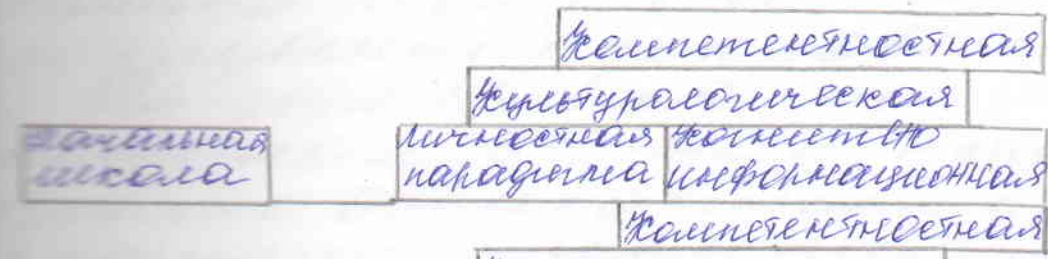 Компетентностная
Культурологическая
Начальная
школа
личностная
парадигма
Когнитивно
информационная
Компетентностная